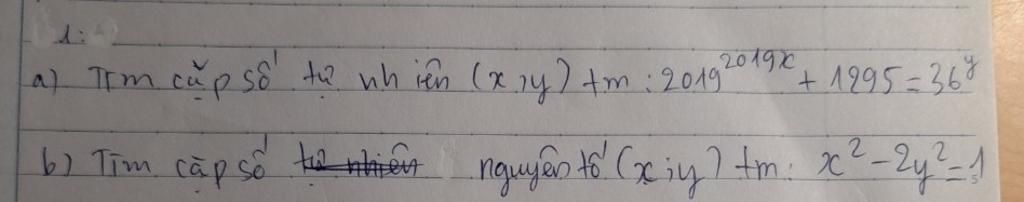 1:
a) Tìm cặp số tự nhiên (x;y) tm: 2019^2019x + 1295 = 36^y
b) Tìm cặp số tự nhiên nguyên tố (x;y) tm: x² - 2y² = 1